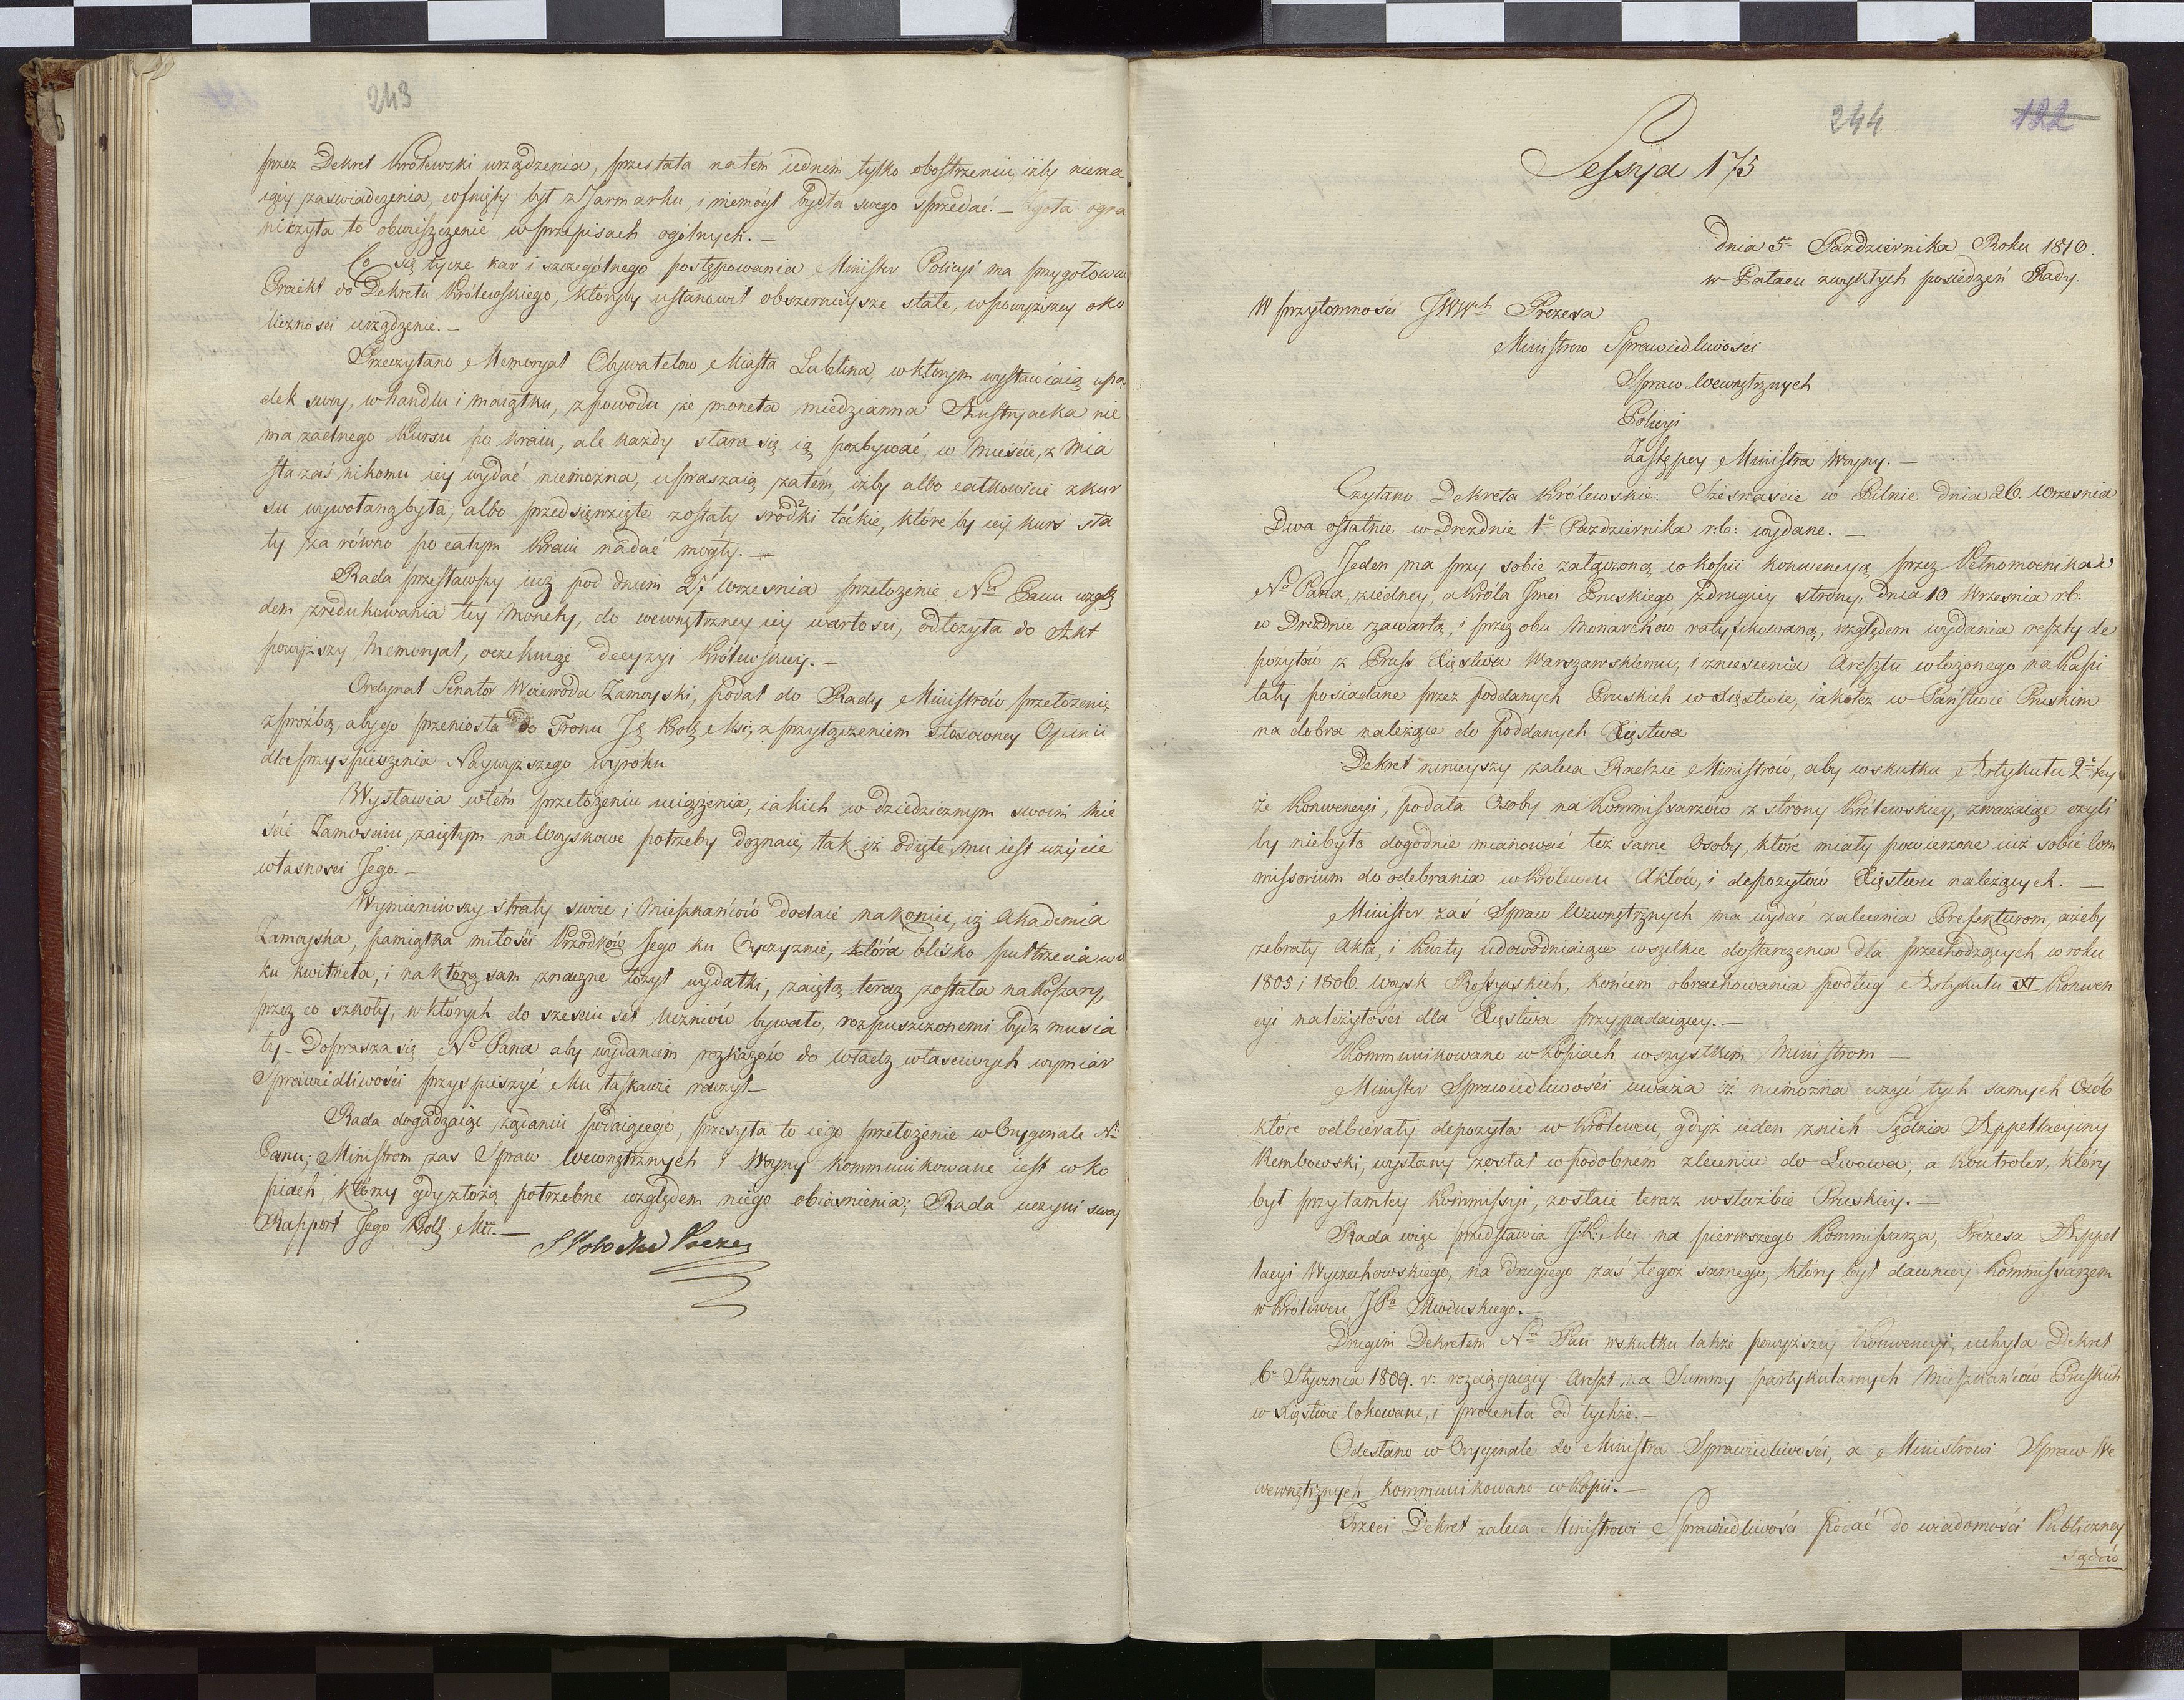 243
przez Dekret Królewski urządzenia, przestała na tém iedném tylko obostrzeniu, iżby niema
iący zaswiadczenia, cofnięty był z Jarmarku, i niemógł bydła swego sprzedać. — ogra
niczyła to obwieszczenie w przepisach ogólnych. —
Co się tycze kar i szczególnego postępowania Minister Policyi ma przygotować
Proiekt do Dekretu Królewskiego, któryby ustanowił obszernieysze stałe, w powyższey oko
liczności urządzenie. —
Przeczytano Memoryał Obywatelow Miasta Lublina, w którym wystawiaią upa
dek swoy, w handlu i maiątku, z powodu że moneta miedzianna Austryacka nie
ma żadnego kursu po kraiu, ale każdy stara się ią pozbywać w Mieście, z Mia
sta zaś nikomu iey wydać niemożna, upraszaią zatém, iżby albo całkowicie z kur
su wywołaną była, albo przedsięwzięte zostały srodki takie, któreby iey kurs sta
ły za równo po całym Kraiu nadać mogły. —
Rada przesławszy iuż pod dniem 27 Wrzesnia przełożenie Nu Panu wzglę
dem zredukowania tey Monety, do wewnętrzney iey wartości, odłożyła do Akt
powyższy Memoryał, oczekuiąc decyzyi Królewskiey. —
Ordynat Senator Woiewoda Zamoyski, podał do Rady Ministrów przełożenie
z prozbą, aby go przeniosła do Tronu Jº Krolº Mci, z przyłączeniem stosowney Opinii
dla przyspieszenia Naywyższego wyroku
Wystawia w tém przełożeniu uciążenia, iakich w dziedzicznym swoim Mie
ście Zamościu, zaiętym na Woyskowe potrzeby doznaie, tak iż odięte mu iest użycie
własności Jego. —
Wymieniwszy straty swoie i Mieszkańców dodaie nakoniec, iż Akademia
Zamoyska, pamiątka miłości Przodków Jego ku Oyczyznie, która blisko puł trzecia wie
ku kwitnęła, i na którą sam znaczne łożył wydatki, zaiętą teraz została na Koszary,
przez co szkoły, w których do szesciu set Uczniów bywało, rozpuszczonemi bydz musia
ły — Doprasza się Nº Pana aby wydaniem rozkazów do władz właściwych wymiar
Sprawiedliwości przyspieszyć Mu łaskawie raczył —
Rada dogadzaiąc żądaniu podaiącego, przesyła to iego przełożenie w Oryginale Nu
Panu; Ministrom zas Spraw Wewnętrznych i Woyny kommunikowane iest w ko
piach, którzy gdy złożą potrzebne względem niego obiaśnienia; Rada uczyni swoy
Rapport Jego Krolº Mci. —
244
122
Sessyja 175
dnia 5º Pazdziernika Roku 1810.
w Pałacu zwykłych posiedzeń Rady.
W przytomności JWWch Prezesa
Ministrow Sprawiedliwości
Spraw Wewnętrznych
Policyi
Zastępcy Ministra Woyny. —
Czytano Dekreta Królewskie: Szesnaście w Pilnie dnia 26. Wrzesnia
Dwa ostatnie w Dreznie 1º Pazdziernika r: b: wydane. —
Jeden ma przy sobie załączoną w kopii konwencyą, przez Pełnomocnika
Nº Pana, z iedney, a Króla Jmci Pruskiego z drugiey strony, dnia 10 Wrzesnia r: b:
w Dreznie zawartą, i przez obu Monarchów ratyfikowaną, względem wydania reszty de
pozytów z Pruss Xięstwa Warszawskiemu, i zniesienia Aresztu włożonego na Kapi
tały posiadane przez poddanych Pruskich w Xięstwie, iakoteż w Państwie Pruskim
na dobra należące do poddanych Xięstwa
Dekret ninieyszy zaleca Radzie Ministrów, aby w skutku Artykułu 2º tey
że Konwencyi, podała Osoby na Kommissarzów z strony Królewskiey, zważaiąc czyli
by niebyło dogodnie mianować też same Osoby, które miały powierzone iuż sobie Com
missorium do odebrania w Królewcu Aktów, i depozytów Xięstwu należących. —
Minister zaś Spraw Wewnętrznych ma wydać zalecenia Prefekturom, ażeby
zebrały Akta, i Kwity udowodniaiące wszelkie dostarczenia dla przechodzących w roku
1805 i 1806. woysk Rossyyskich, końcem obrachowania podług Artykułu XI Konwen
cyi należytości dla Xięstwa przypadaiącey. —
Kommunikowano w Kopiach wszystkim Ministrom —
Minister Sprawiedliwości uważa iż niemożna użyć tych samych Osób
które odbierały depozyta w Królewcu, gdyż ieden z nich Sędzia Appellacyiny
Rembowski, wysłany został w podobnem zleceniu do Lwowa, a Kontroler, który
był przy tamtey Kommissyi, zostaie teraz w służbie Pruskiey. —
Rada więc przedstawia J: K: Mci na pierwszego Kommissarza, Prezesa Appel
lacyi Wyczechowskiego, na drugiego zaś tegoż samego, który był dawniey Kommissarzem
w Królewcu JPa Mioduskiego. —
Drugim Dekretem Nº Pan w skutku także powyższey Konwencyi, uchyla Dekret
6º Stycznia 1809. r: rozciągaiący Areszt na Summy partykularnych Mieszkańców Pruskich
w Xięstwie lokowane, i procenta od tychże. —
Odesłano w Oryginale do Ministra Sprawiedliwości, a Ministrowi Spraw We
wewnętrznych kommunikowano w Kopii. —
Trzeci Dekret zaleca Ministrowi Sprawiedliwości podać do wiadomości Publiczney
sądów